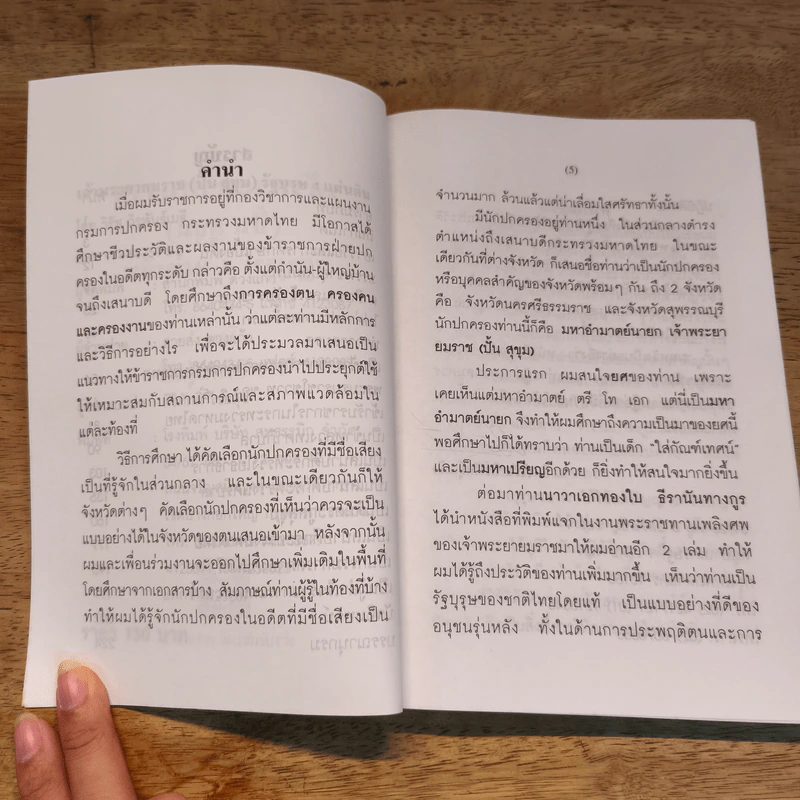 คำนำ
เมื่อผมรับราชการอยู่ที่กองวิชาการและแผนงาน
กรมการปกครอง กระทรวงมหาดไทย มีโอกาสได้
ศึกษาชีวประวัติและผลงานของข้าราชการฝ่ายปก
ครองในอดีตทุกระดับ กล่าวคือ ตั้งแต่กำนัน-ผู้ใหญ่บ้าน
จนถึงเสนาบดี โดยศึกษาถึงการครองตน ครองคน
และครองงานของท่านเหล่านั้น ว่าแต่ละท่านมีหลักการ
และวิธีการอย่างไร เพื่อจะได้ประมวลมาเสนอเป็น
แนวทางให้ข้าราชการกรมการปกครองนำไปประยุกต์ใช้
ให้เหมาะสมกับสถานการณ์และสภาพแวดล้อมใน
แต่ละท้องที่
วิธีการศึกษา ได้คัดเลือกนักปกครองที่มีชื่อเสียง
เป็นที่รู้จักในส่วนกลาง และในขณะเดียวกันก็ให้
จังหวัดต่างๆ คัดเลือกนักปกครองที่เห็นว่าควรจะเป็น
แบบอย่างได้ในจังหวัดของตนเสนอเข้ามา หลังจากนั้น
ผมและเพื่อนร่วมงานจะออกไปศึกษาเพิ่มเติมในพื้นที่
โดยศึกษาจากเอกสารบ้าง สัมภาษณ์ท่านผู้รู้ในท้องที่บ้าง
ทำให้ผมได้รู้จักนักปกครองในอดีตที่มีชื่อเสียงเป็น
(5)
จำนวนมาก ล้วนแล้วแต่น่าเลื่อมใสศรัทธาทั้งนั้น
มีนักปกครองอยู่ท่านหนึ่ง ในส่วนกลางดำรง
ตำแหน่งถึงเสนาบดีกระทรวงมหาดไทย ในขณะ
เดียวกันที่ต่างจังหวัด ก็เสนอชื่อท่านว่าเป็นนักปกครอง
หรือบุคคลสำคัญของจังหวัดพร้อมๆ กัน ถึง 2 จังหวัด
คือ จังหวัดนครศรีธรรมราช และจังหวัดสุพรรณบุรี
นักปกครองท่านนี้ก็คือ มหาอำมาตย์นายก เจ้าพระยา
ยมราช (ปั้น สุขุม)
ประการแรก ผมสนใจยศของท่าน เพราะ
เคยเห็นแต่มหาอำมาตย์ ตรี โท เอก แต่นี่เป็นมหา
อำมาตย์นายก จึงทำให้ผมศึกษาถึงความเป็นมาของยศนี้
พอศึกษาไปก็ได้ทราบว่า ท่านเป็นเด็ก "ใส่กัณฑ์เทศน์"
และเป็นมหาเปรียญอีกด้วย ก็ยิ่งทำให้สนใจมากยิ่งขึ้น
ต่อมาท่านนาวาเอกทองใบ ธีรานันทางกูร
ได้นำหนังสือที่พิมพ์แจกในงานพระราชทานเพลิงศพ
ของเจ้าพระยายมราชมาให้ผมอ่านอีก 2 เล่ม ทำให้
ผมได้รู้ถึงประวัติของท่านเพิ่มมากขึ้น เห็นว่าท่านเป็น
รัฐบุรุษของชาติไทยโดยแท้ เป็นแบบอย่างที่ดีของ
อนุชนรุ่นหลัง ทั้งในด้านการประพฤติตนและการ